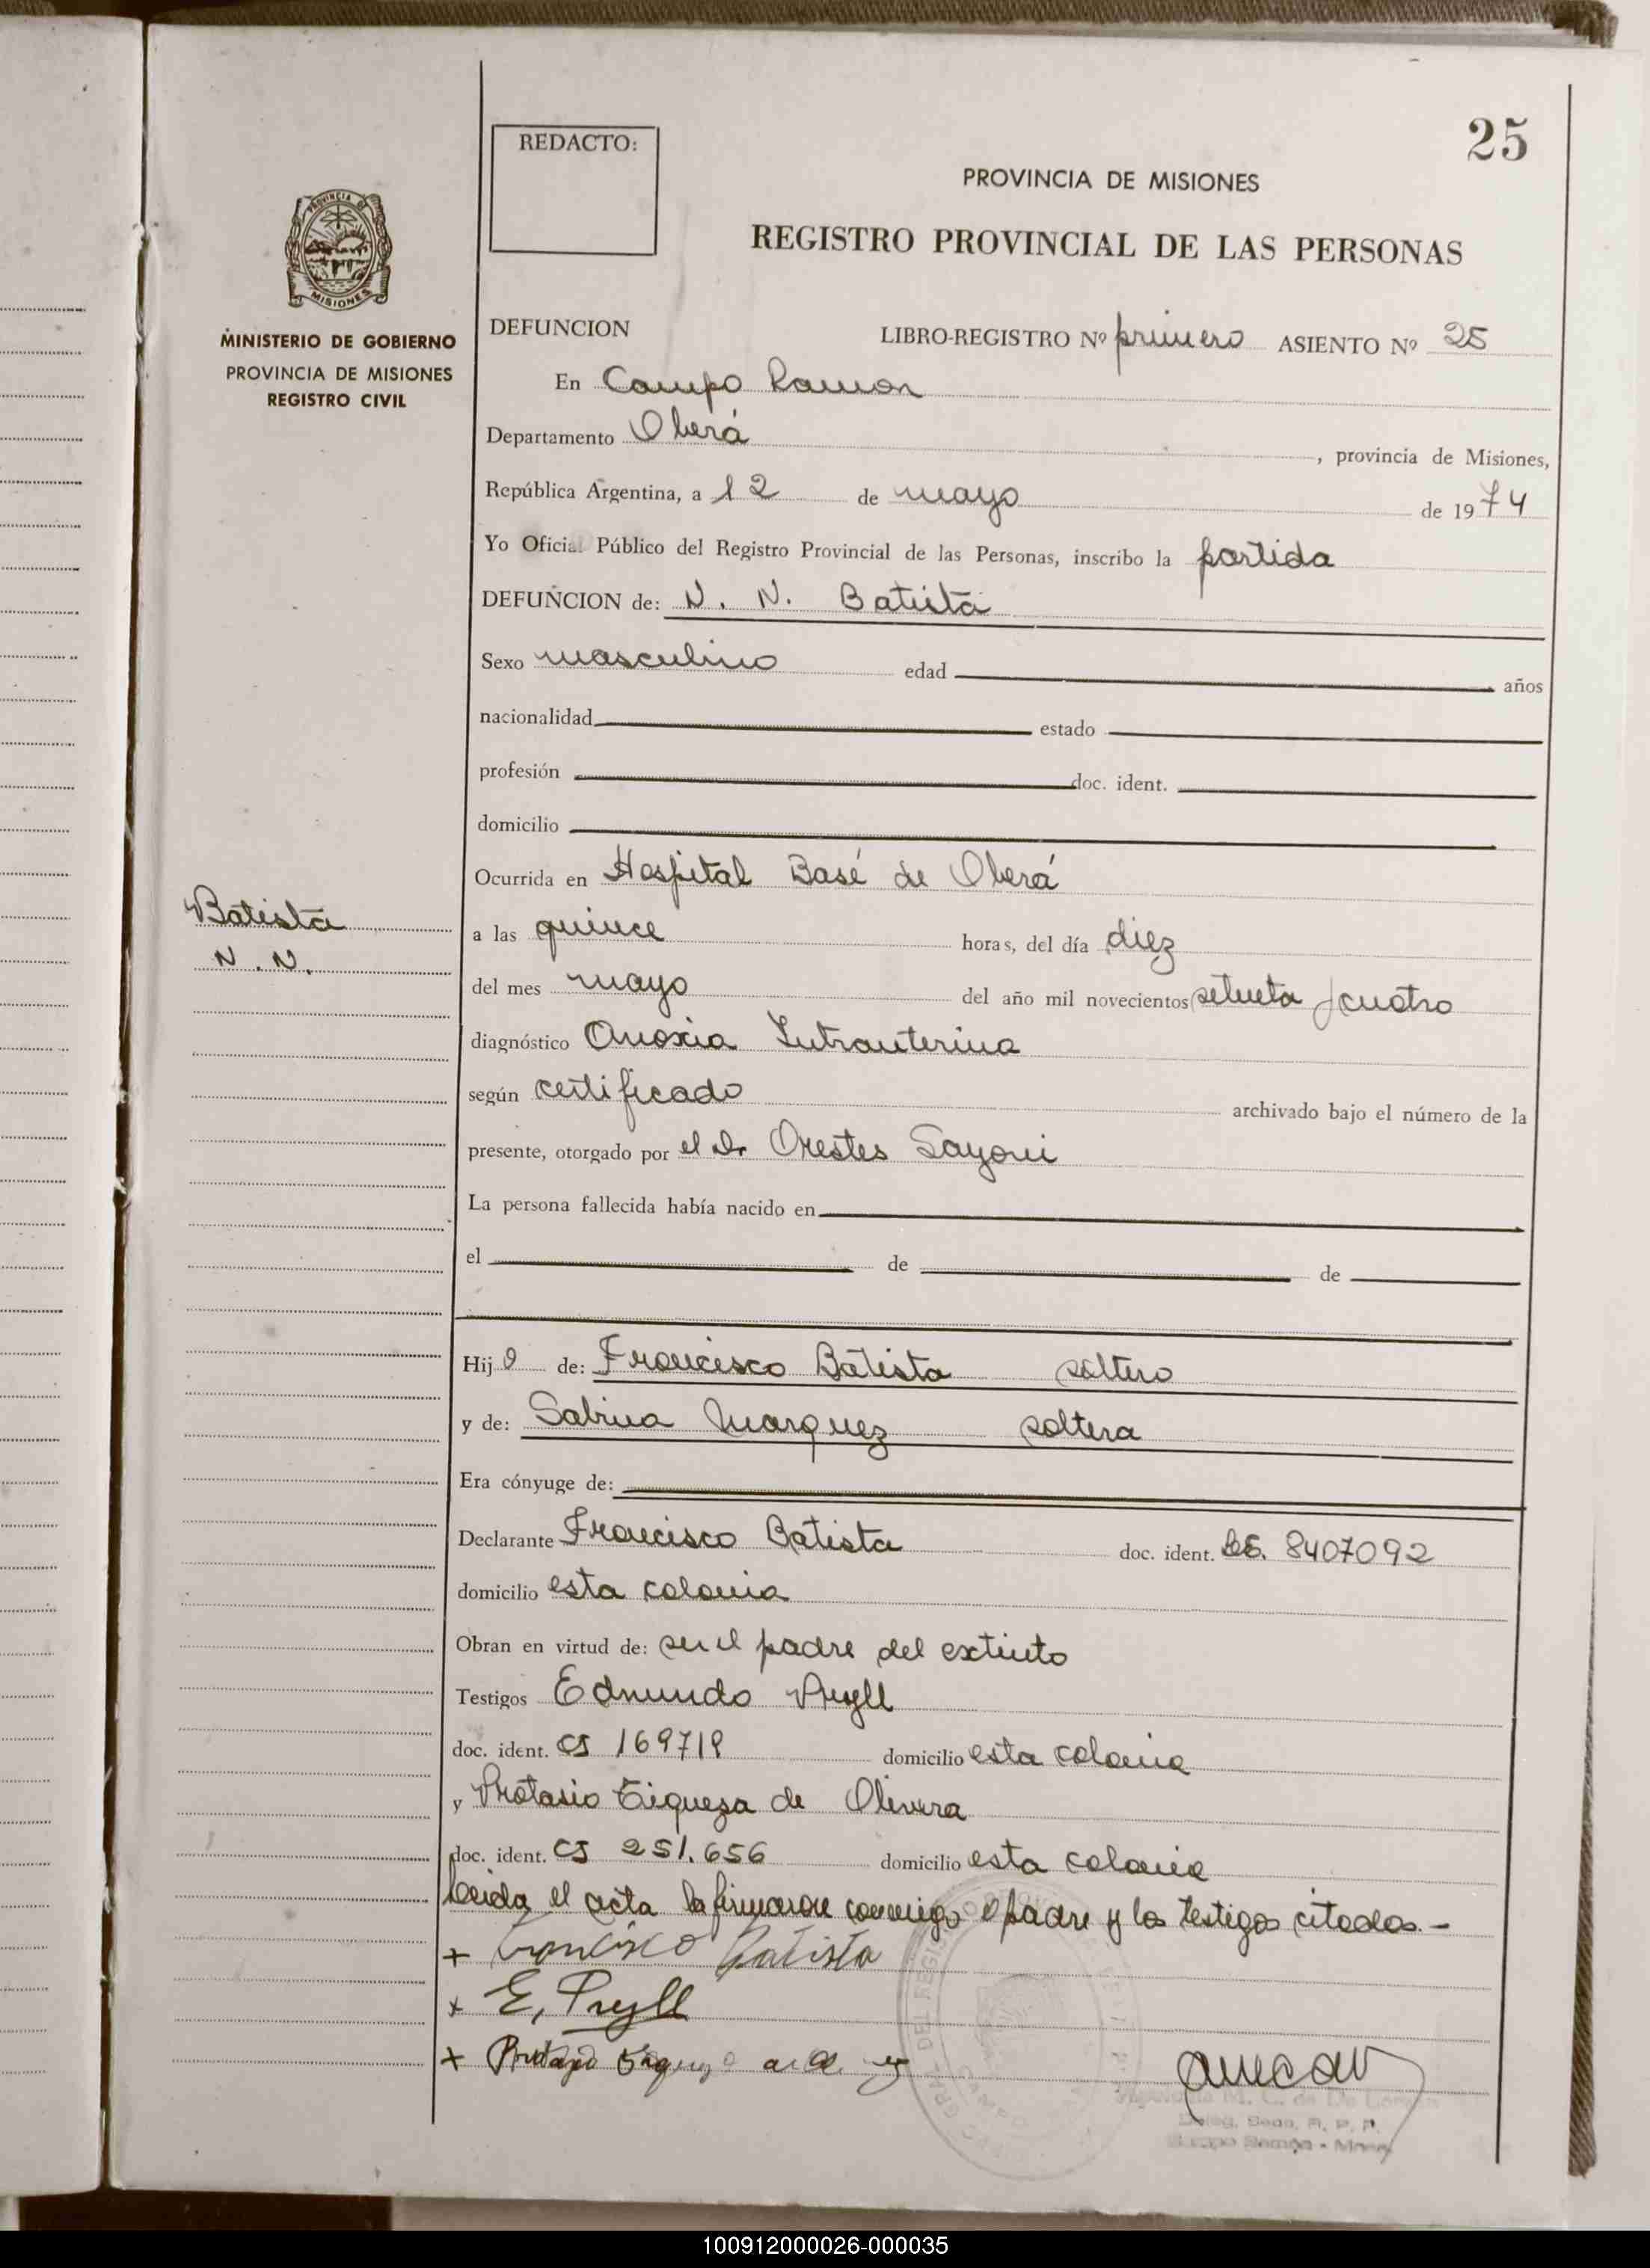 25
REDACTO:
PROVINCIA DE MISIONES
REGISTRO PROVINCIAL DE LAS PERSONAS
PROVINCIA DE
MISIONES
MINISTERIO DE GOBIERNO
PROVINCIA DE MISIONES
REGISTRO CIVIL
DEFUNCION LIBRO-REGISTRO Nº primero ASIENTO Nº 25
En Campo Ramon
Departamento Oberá, provincia de Misiones,
República Argentina, a 12 de mayo de 1974
Yo Oficial Público del Registro Provincial de las Personas, inscribo la partida
DEFUNCION de: N. N. Batista
Sexo masculino edad años
nacionalidad estado
profesión doc. ident.
domicilio
Ocurrida en Hospital Basé de Oberá
Batista
N. N.
a las quince horas, del día diez
del mes mayo del año mil novecientos setenta y cuatro
diagnóstico Anoxia Intrauterina
según certificado archivado bajo el número de la
presente, otorgado por el Dr Orestes
La persona fallecida había nacido en
el de de
Hijo de: Francisco Batista soltero
y de: Sabina Marquez soltera
Era cónyuge de:
Declarante Francisco Batista doc. ident. 8407092
domicilio esta colonia
Obran en virtud de: ser el padre del extinto
Testigos Edmundo Pryll
doc. ident. CJ 169719 domicilio esta colonia
y Protasio de Olivera
doc. ident. CJ 251.656 domicilio esta colonia
Leida el acta la firmaron conmigo el padre y los testigos citados.-
+ Francisco Batista
x E, Pryll
+
Deleg. Secc. R. P. P.
Campo Ramón - Mnes.
100912000026-000035